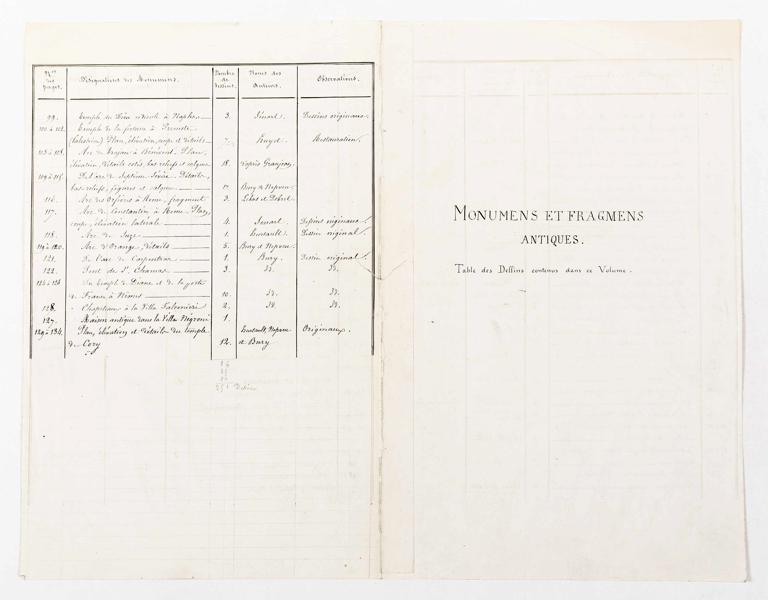 Nos des pages.
Désignations des Monumens.
Nombre de Dessins.
Noms des Auteurs.
Observations.
99. Temple du Dieu à Naples 3. Dessins originaux.
Temple de la fortune à
Plan, élévation, coupe et détails 7. Huyot. Restauration.
Arc de Trajan à Bénévent. Plan,
élévation, détails cotés, bas reliefs et 18. d'après Granjean
109 à 115. De l'arc de Septime Sévère. Détails,
bas reliefs, figures et 17. Bury & Nepveu
116. Arc des Orfèvres à Rome, fragment 3. Lebas et Debret
117. Arc de Constantin à Rome. Plan,
coupe, élévation latérale 4. Dessins originaux.
118. Arc de Suze 1. Dessin original.
119 à 120. Arc d'Orange, détails 5. Bury et Nepveu
121. De l'arc de Carpentras 1. Bury. Dessin original.
122. Pont de St. Chamas 3. Id. Id.
Du temple de Diane et de la porte
de France, à Nimes 10. Id. Id.
Chapiteau à la Villa 2. Id. Id.
127. Maison antique dans la Villa Négroni 1.
129 à 134. Plan, élévation et détails du temple Nepveu Originaux.
de Cory 12. et Bury
MONUMENS ET FRAGMENS
ANTIQUES.
Table des Dessins contenus dans ce Volume.